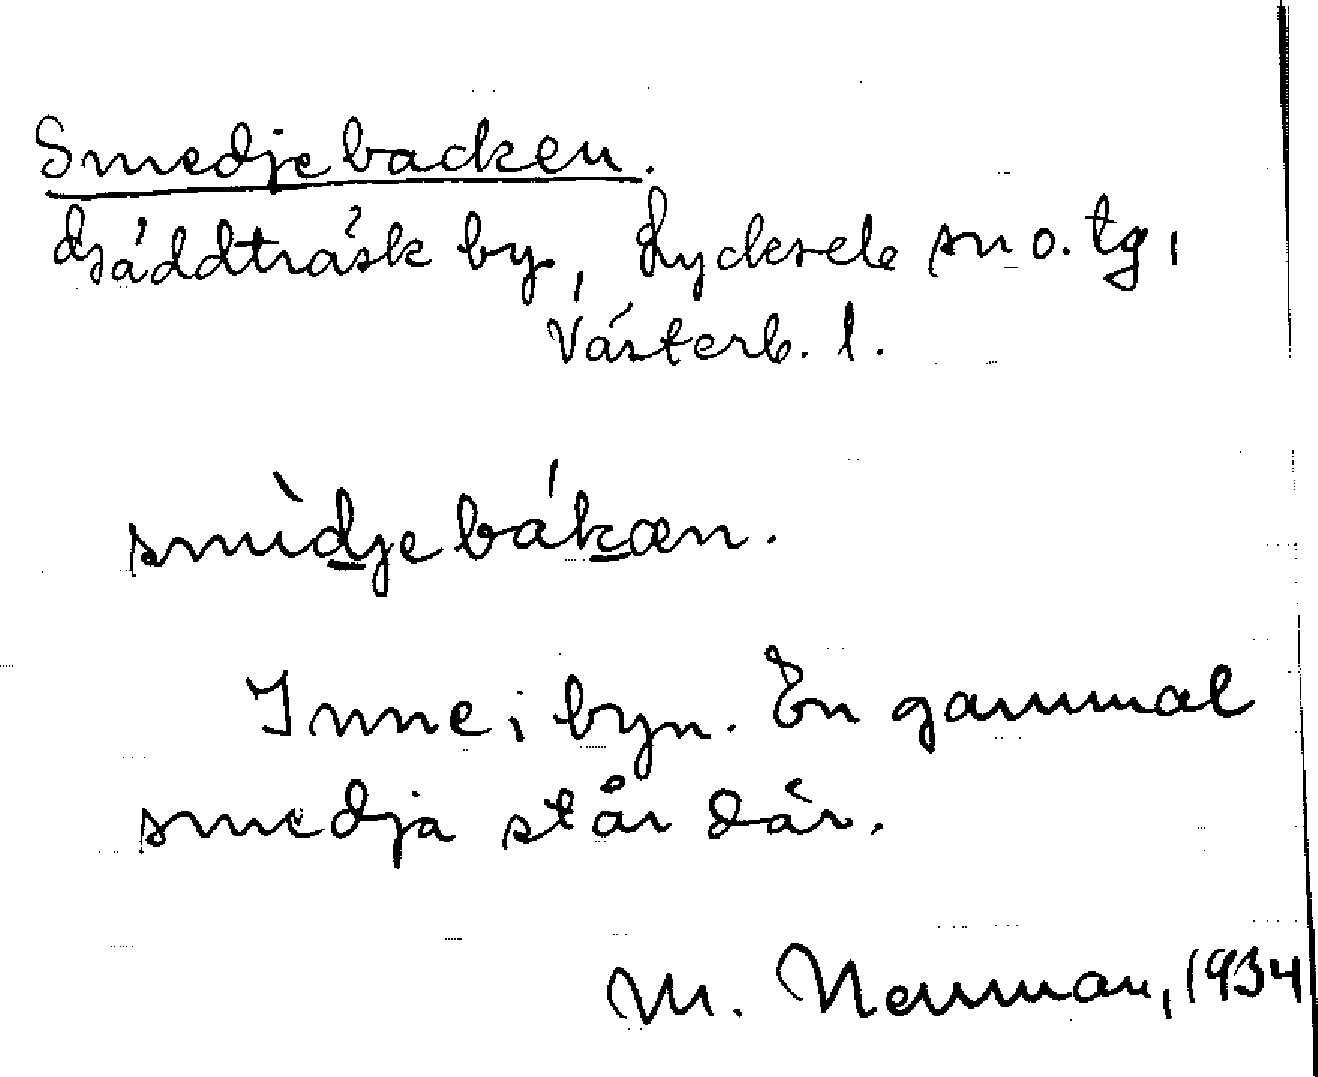 Smedjebacken.
Bjräddträsk by, Lycksele sn o. tg,
Västerb. l.
smìdjebákæn.
Inne i byn. En gammal
smedja står där.
M. Nenman, 1934